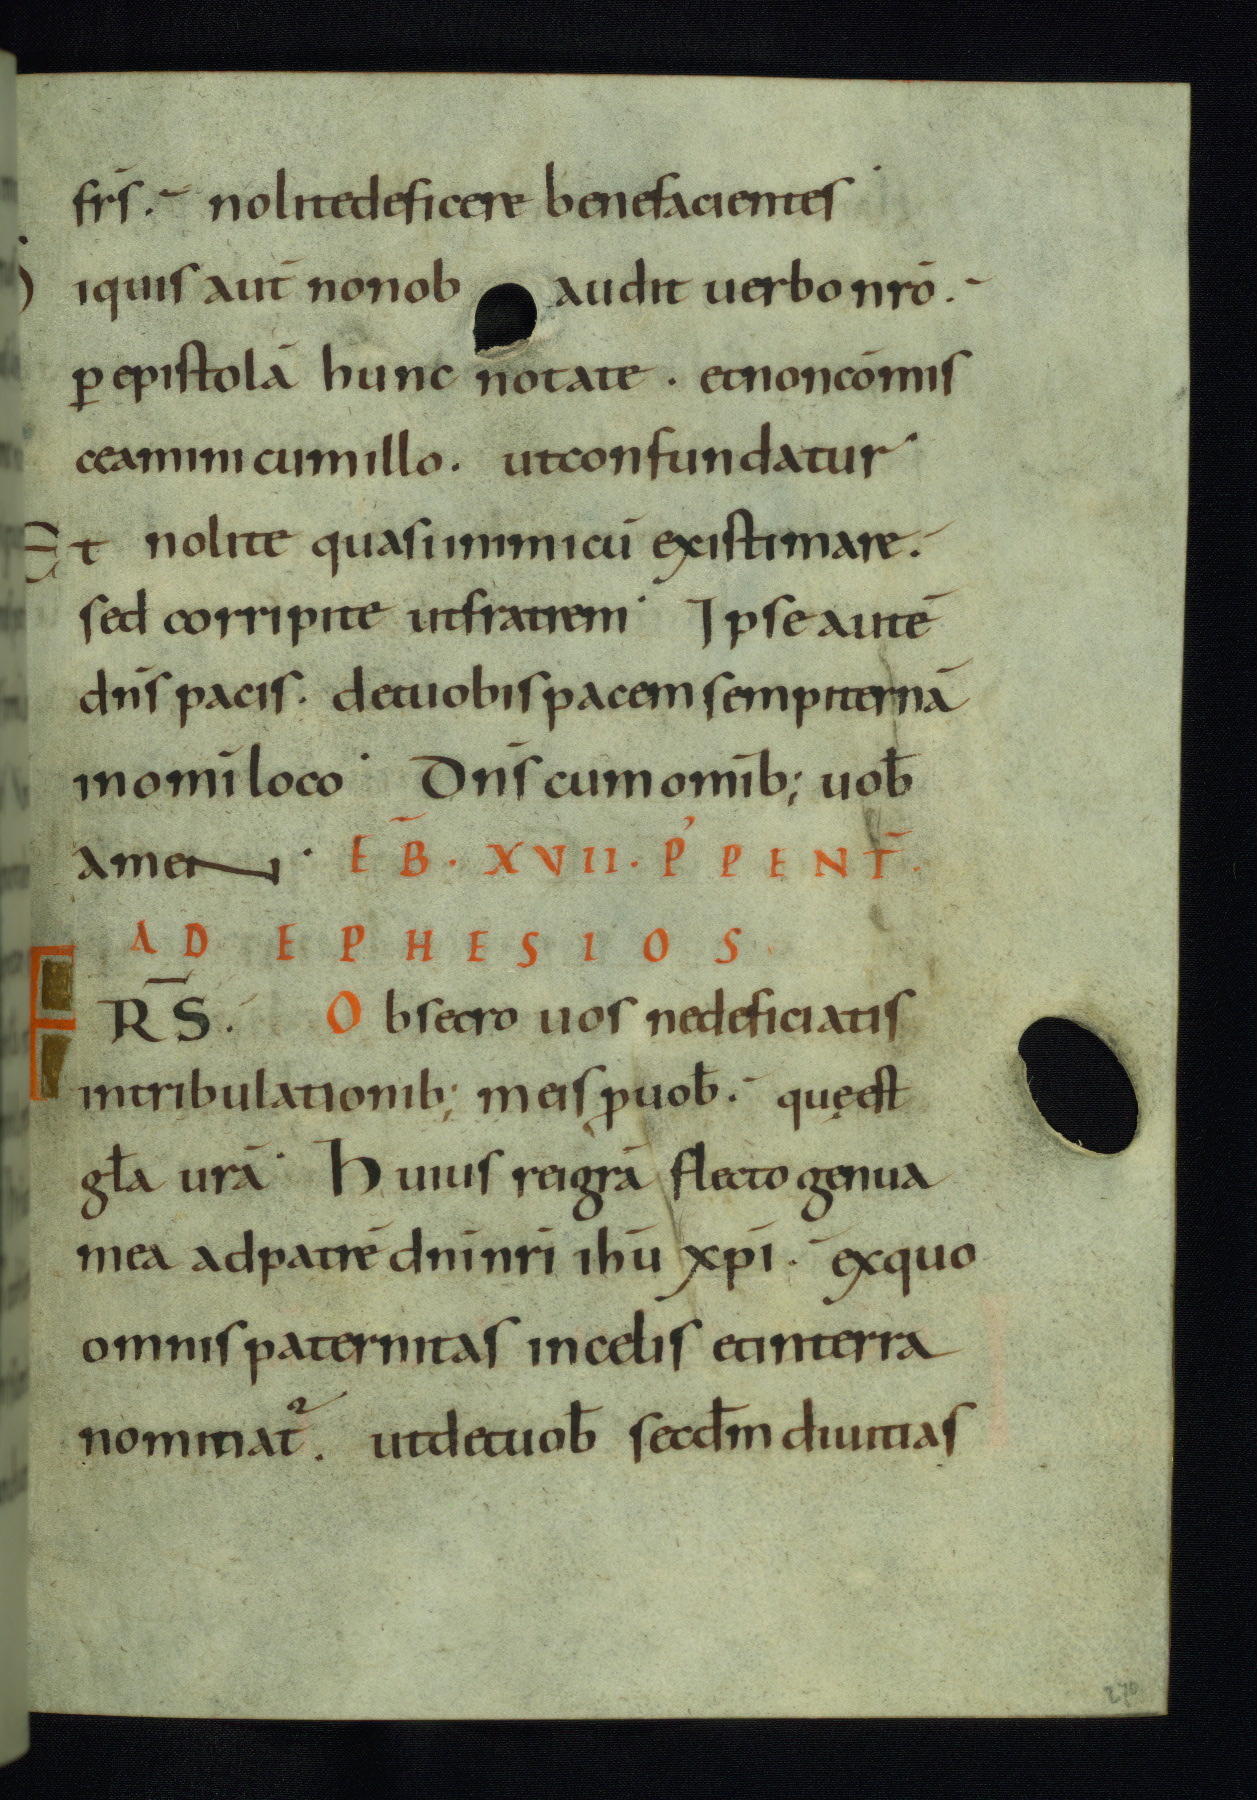 fr̄s. nolitedeficere benefacientes
Siquis aut̄ nonob audit uerbo nr̄o.
ꝑ epistolā hunc notate . etnoncōmis
ceamini cumillo. utconfundatur
Et nolite quasiinimicū existimare.
sed corripite utfratrem Ipse autē
dn̄s pacis. detuobis pacem sempiternā
inomī loco Dn̄s cum omīb; uob̄
amen EB̄. XVII. P' PENT̄.
AD EPHESIOS.
FR̄S. Obsecro uos nedeficiatis
intribulationib; meis ꝓuob̄. quę est
gła urā Huius reigrā flecto genua
mea adpatrē dnīnrī ihū xpī. exquo
omnis paternitas incelis etinterra
nominat᷑. utdetuob̄ secdm̄ diuitias
270